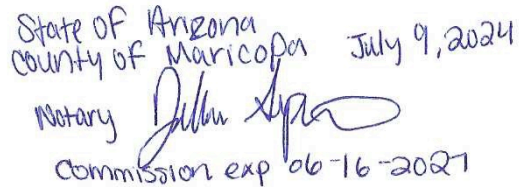 State of Arizona
county of Maricopa July 9, 2024
Notary
Commission exp 06-16-2027